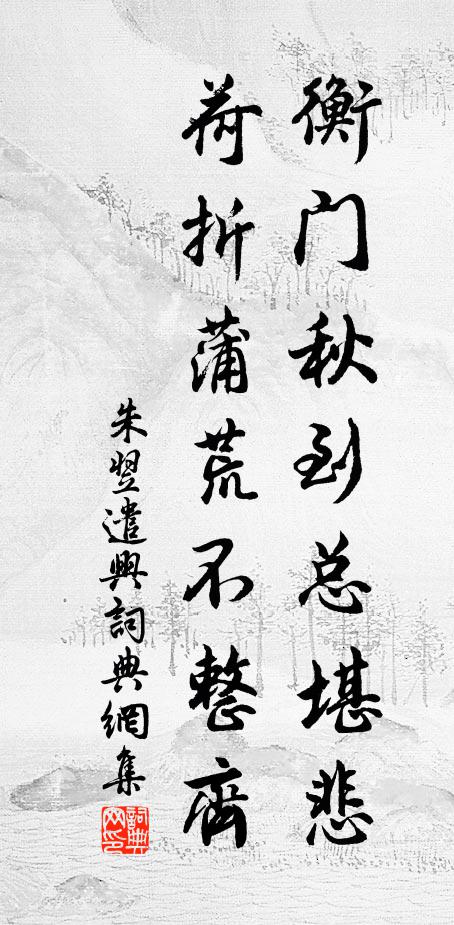 衡门秋到总堪悲
荷折蒲荒不整齊
朱翌遣興詞典網集
詞典网印